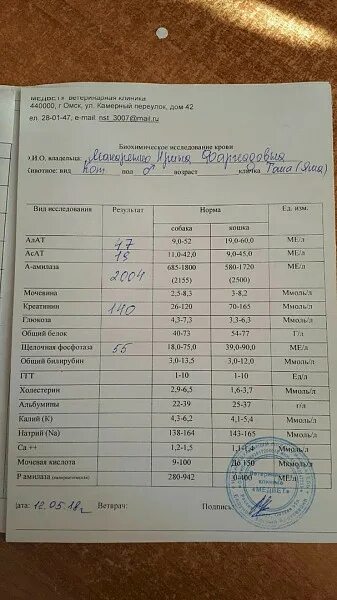 МЕДВЕТ ветеринарная клиника
440000, г Омск, ул. Камерный переулок, дом 42
ел. 28-01-47, e-mail: nst_3007@mail.ru
Биохимическое исследование крови
.И.О. владельца: Макаренко Ирина
ивотное: вид Кот пол ♂ возраст кличка (Яша)
Вид исследования Результат Норма Ед. изм.
собака кошка
АлАТ 47 9,0-52 19,0-60,0 МЕ/л
АсАТ 18 11,0-42,0 9,0-45,0 МЕ/л
А-амилаза 2004 685-1800 (2155) 580-1720 (2500) МЕ/л
Мочевина 2,5-8,3 3-8,2 Ммоль/л
Креатинин 140 26-120 70-165 Ммоль/л
Глюкоза 4,3-7,3 3,3-6,3 Ммоль/л
Общий белок 40-73 54-77 Г/л
Щелочная фосфотаза 55 18,0-75,0 39,0-90,0 МЕ/л
Общий билирубин 3,0-13,5 3,0-12,0 Ммоль/л
ГГТ 1-10 1-10 Ед/л
Холестерин 2,9-6,5 1,6-3,7 Ммоль/л
Альбумины 22-39 25-37 г/л
Калий (К) 4,3-6,2 4,1-5,4 Ммоль/л
Натрий (Na) 138-164 143-165 Ммоль/л
Са ++ 1,2-1,5 Ммоль/л
Мочевая кислота 9-100 До 150 Мкмоль/л
Р амилаза 280-942 0-400 МЕ/л
дата: 12.05.18г Ветврач: Подпись:
Ветеринарная клиника «МЕДВЕТ»